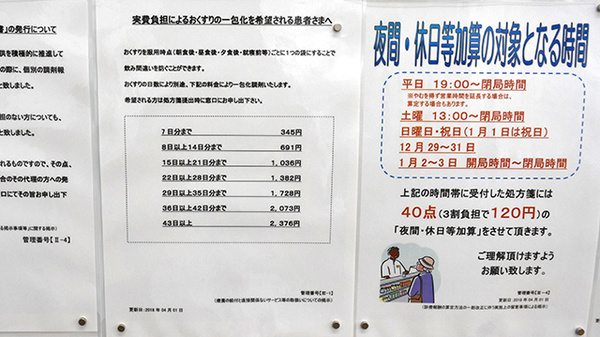 書」の発行について
供を積極的に推進して
の際に、個別の調剤報
と致しました。
担のない方についても、
と致しました。
れるものですので、その点、
合その代理の方への発
口にてその旨お申し出下
管理番号【Ⅱ-4】
実費負担によるおくすりの一包化を希望される患者さまへ
おくすりを服用時点（朝食後・昼食後・夕食後・就寝前等）ごとに1つの袋にすることで
飲み間違いを防ぐことができます。
おくすりの日数により別途、下記の料金により一包化調剤いたします。
希望される方は処方箋提出時に窓口にお申し出下さい。
7日分まで 345円
8日以上14日分まで 691円
15日以上21日分まで 1,036円
22日以上28日分まで 1,382円
29日以上35日分まで 1,728円
36日以上42日分まで 2,073円
43日以上 2,376円
更新日:2018 年 04 月 01 日
夜間・休日等加算の対象となる時間
平日 19:00～閉局時間
※やむを得ず営業時間を延長する場合は、
算定する場合もあります。
土曜 13:00～閉局時間
日曜日・祝日(1月1日は祝日)
12月29~31日
1月2~3日 開局時間~閉局時間
上記の時間帯に受付した処方箋には
40点(3割負担で120円)の
「夜間・休日等加算」をさせて頂きます。
ご理解頂けますよう
お願い致します。
管理番号【Ⅲ-4】
更新日:2018 年 04 月 01 日